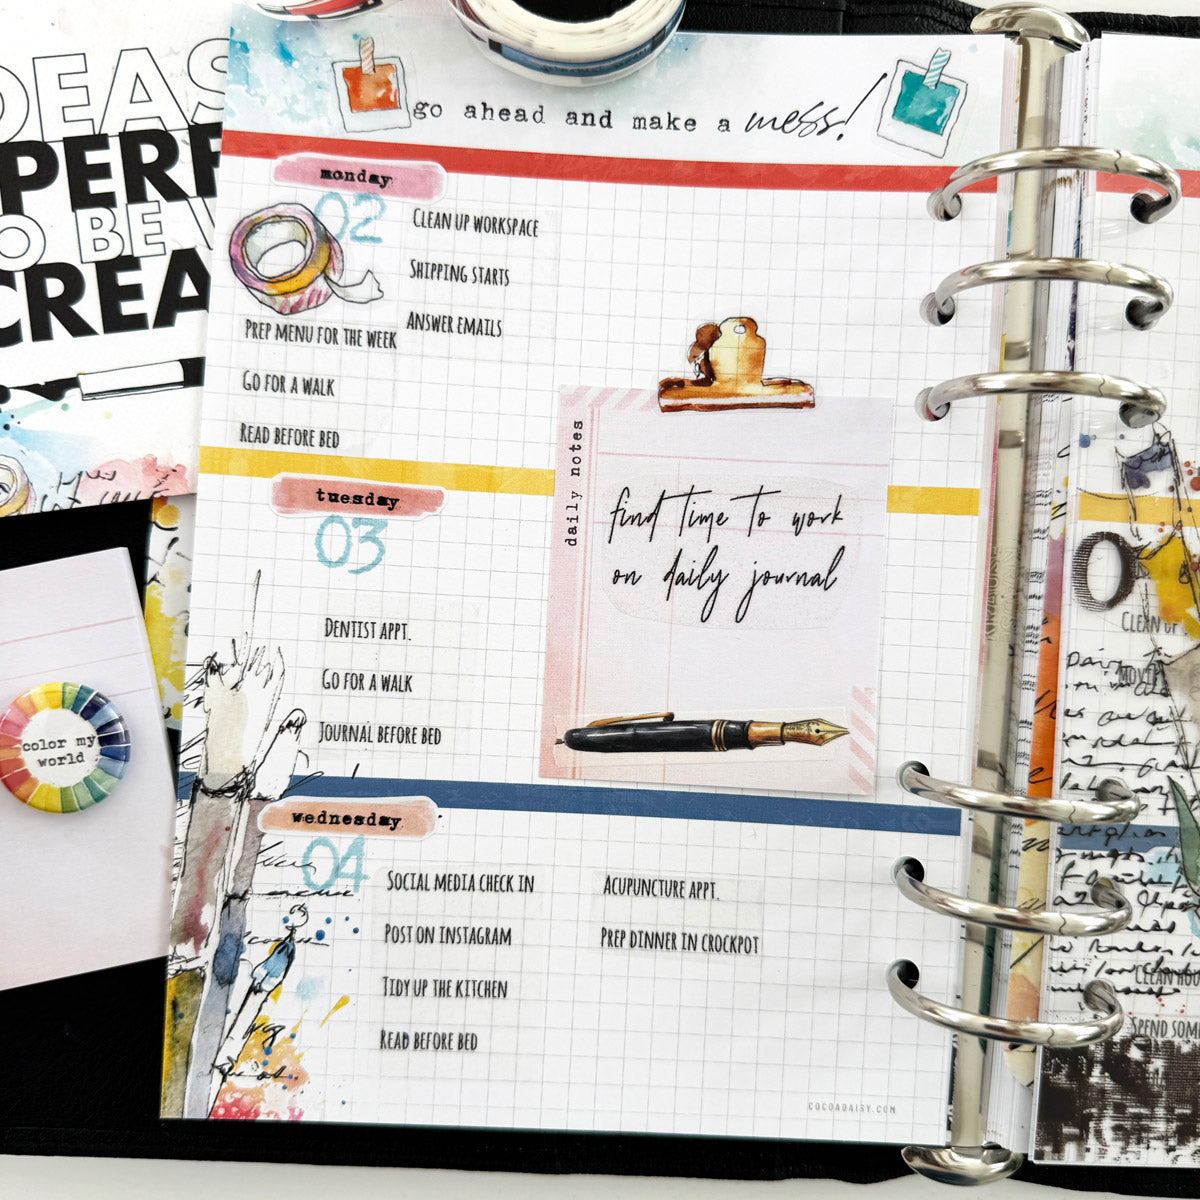 IDEAS
PERF
TO BE
CREA
color my
world
go ahead and make a mess!
monday
02
CLEAN UP WORKSPACE
SHIPPING STARTS
ANSWER EMAILS
PREP MENU FOR THE WEEK
GO FOR A WALK
READ BEFORE BED
tuesday
03
DENTIST APPT.
GO FOR A WALK
JOURNAL BEFORE BED
daily notes
find time to work
on daily journal
wednesday
04
SOCIAL MEDIA CHECK IN
POST ON INSTAGRAM
TIDY UP THE KITCHEN
READ BEFORE BED
ACUPUNCTURE APPT.
PREP DINNER IN CROCKPOT
COCOADAISY.COM
CLEAN UP
MOVIE
CLEAN HOU
SPEND SOM